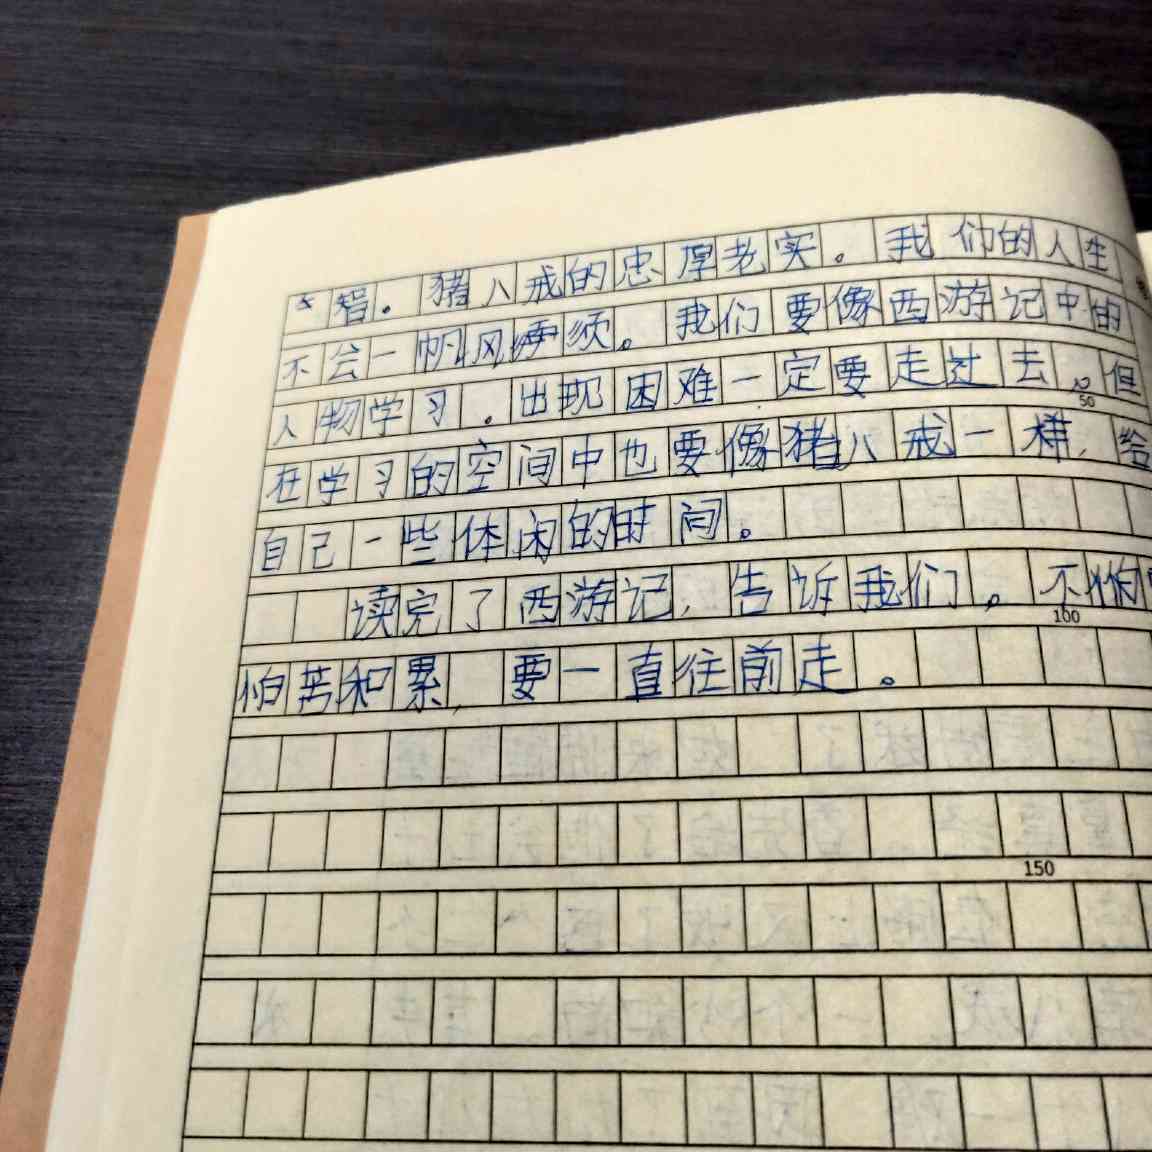 智。猪八戒的忠厚老实。我们的人生
不会一帆风须。我们要像西游记中的
人物学习。出现困难一定要走过去。但
50
在学习的空间中也要像猪八戒一样,给
自己一些体闲的时间。
读完了西游记,告诉我们。不怕
100
怕苦和累,要一直往前走。
150